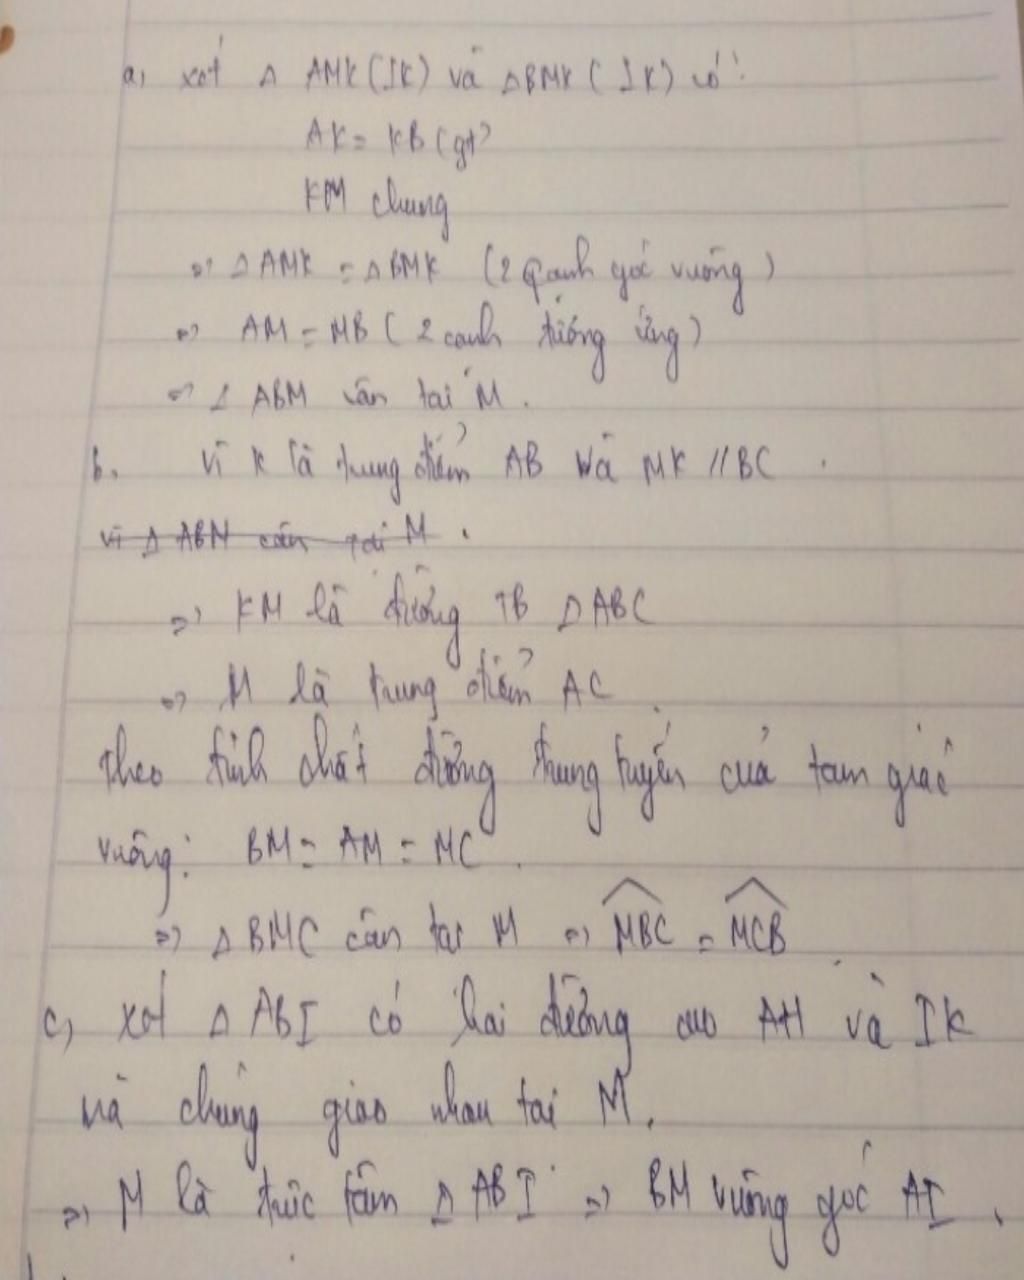 a, xét Δ AMK (IK) và ΔBMK (IK) có:
AK = KB (gt)
KM chung
=> ΔAMK = ΔBMK (2 cạnh góc vuông)
=> AM = MB (2 cạnh tương ứng)
=> Δ ABM cân tại M.
b. Vì K là trung điểm AB và MK // BC.
vì Δ ABM cân tại M.
=> KM là đường TB ΔABC
=> M là trung điểm AC.
Theo tính chất đường trung tuyến của tam giác
vuông: BM = AM = MC.
=> ΔBMC cân tại M => MBC = MCB
c, xét Δ ABI có hai đường cao AH và IK
mà chúng giao nhau tại M.
=> M là trực tâm Δ ABI => BM vuông góc AI.